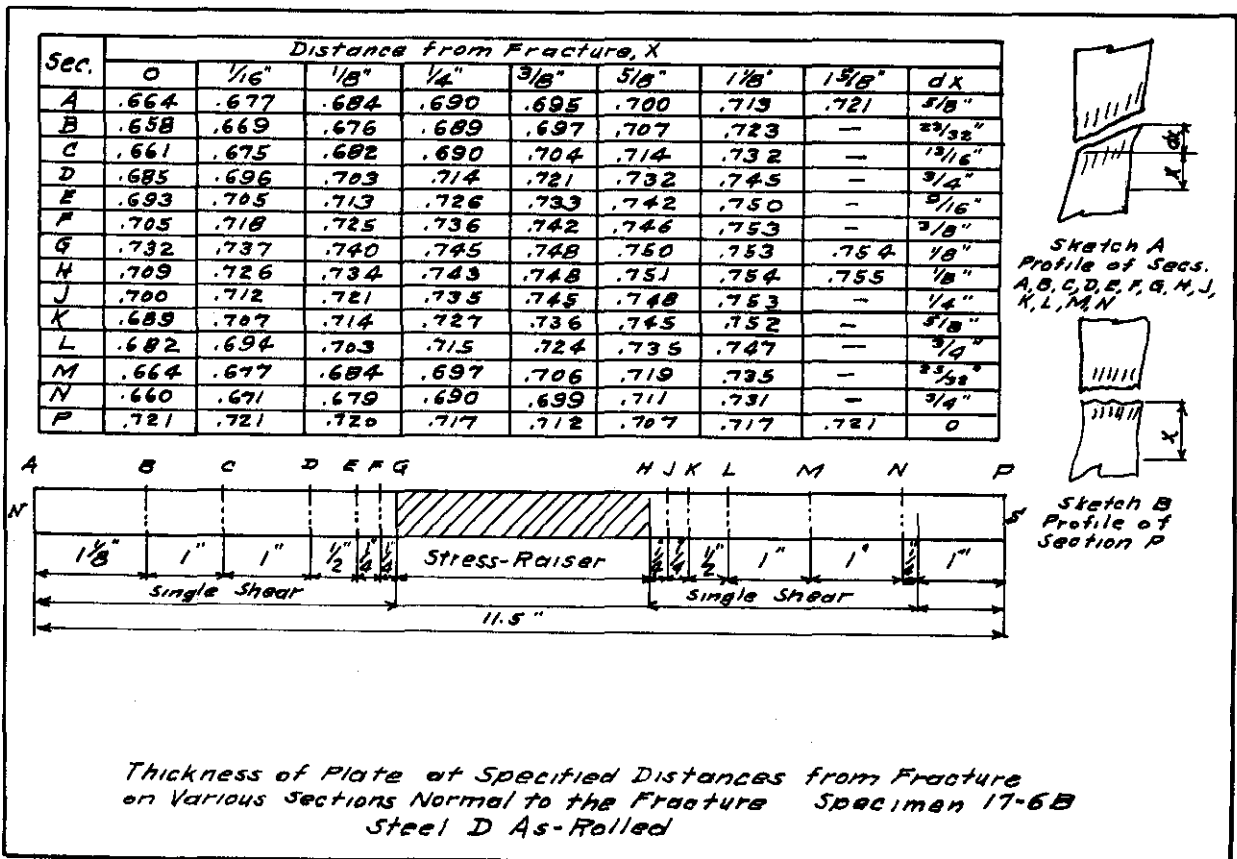 Sec. Distance from Fracture, X
0 1/16" 1/8" 1/4" 3/8" 5/8" 1 1/8" 1 5/8" dX
A .664 .677 .684 .690 .695 .700 .713 .721 5/8"
B .658 .669 .676 .689 .697 .707 .723 — 23/32"
C .661 .675 .682 .690 .704 .714 .732 — 13/16"
D .685 .696 .703 .714 .721 .732 .745 — 3/4"
E .693 .705 .713 .726 .733 .742 .750 — 9/16"
F .705 .718 .725 .736 .742 .746 .753 — 3/8"
G .732 .737 .740 .745 .748 .750 .753 .754 1/8"
H .709 .726 .734 .743 .748 .751 .754 .755 1/8"
J .700 .712 .721 .735 .745 .748 .753 — 1/4"
K .689 .707 .714 .727 .736 .745 .752 — 5/8"
L .682 .694 .703 .715 .724 .735 .747 — 3/4"
M .664 .677 .684 .697 .706 .719 .735 — 23/32"
N .660 .671 .679 .690 .699 .711 .731 — 3/4"
P .721 .721 .720 .717 .712 .707 .717 .721 0
dx
X
Sketch A
Profile of Secs.
A, B, C, D, E, F, G, H, J,
K, L, M, N
X
Sketch B
Profile of
Section P
A B C D E F G H J K L M N P
N S
1 1/8" 1" 1" 1/2" 1/4" 1/4" Stress-Raiser 1/4" 1/4" 1/2" 1" 1" 1"
Single Shear Single Shear
11.5"
Thickness of Plate at Specified Distances from Fracture
on Various Sections Normal to the Fracture Specimen 17-6B
Steel D As-Rolled